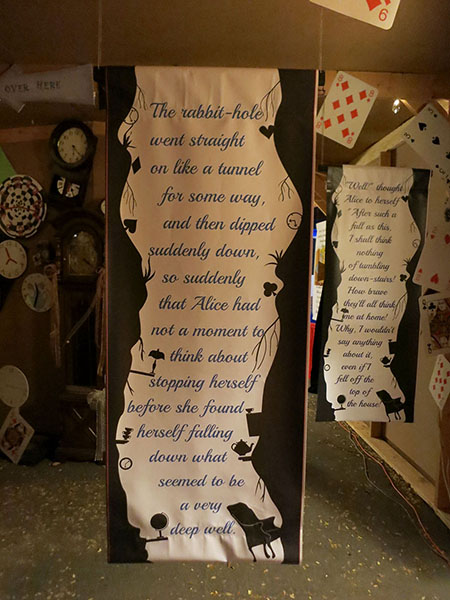 OVER HERE
The rabbit-hole
went straight
on like a tunnel
for some way,
and then dipped
suddenly down,
so suddenly
that Alice had
not a moment to
think about
stopping herself
before she found
herself falling
down what
seemed to be
a very
deep well.
"Well!" thought
Alice to herself
"After such a
fall as this,
I shall think
nothing
of tumbling
down-stairs!
How brave
they'll all think
me at home!
Why, I wouldn't
say anything
about it,
even if I
fell off the
top of
the house!
6
8